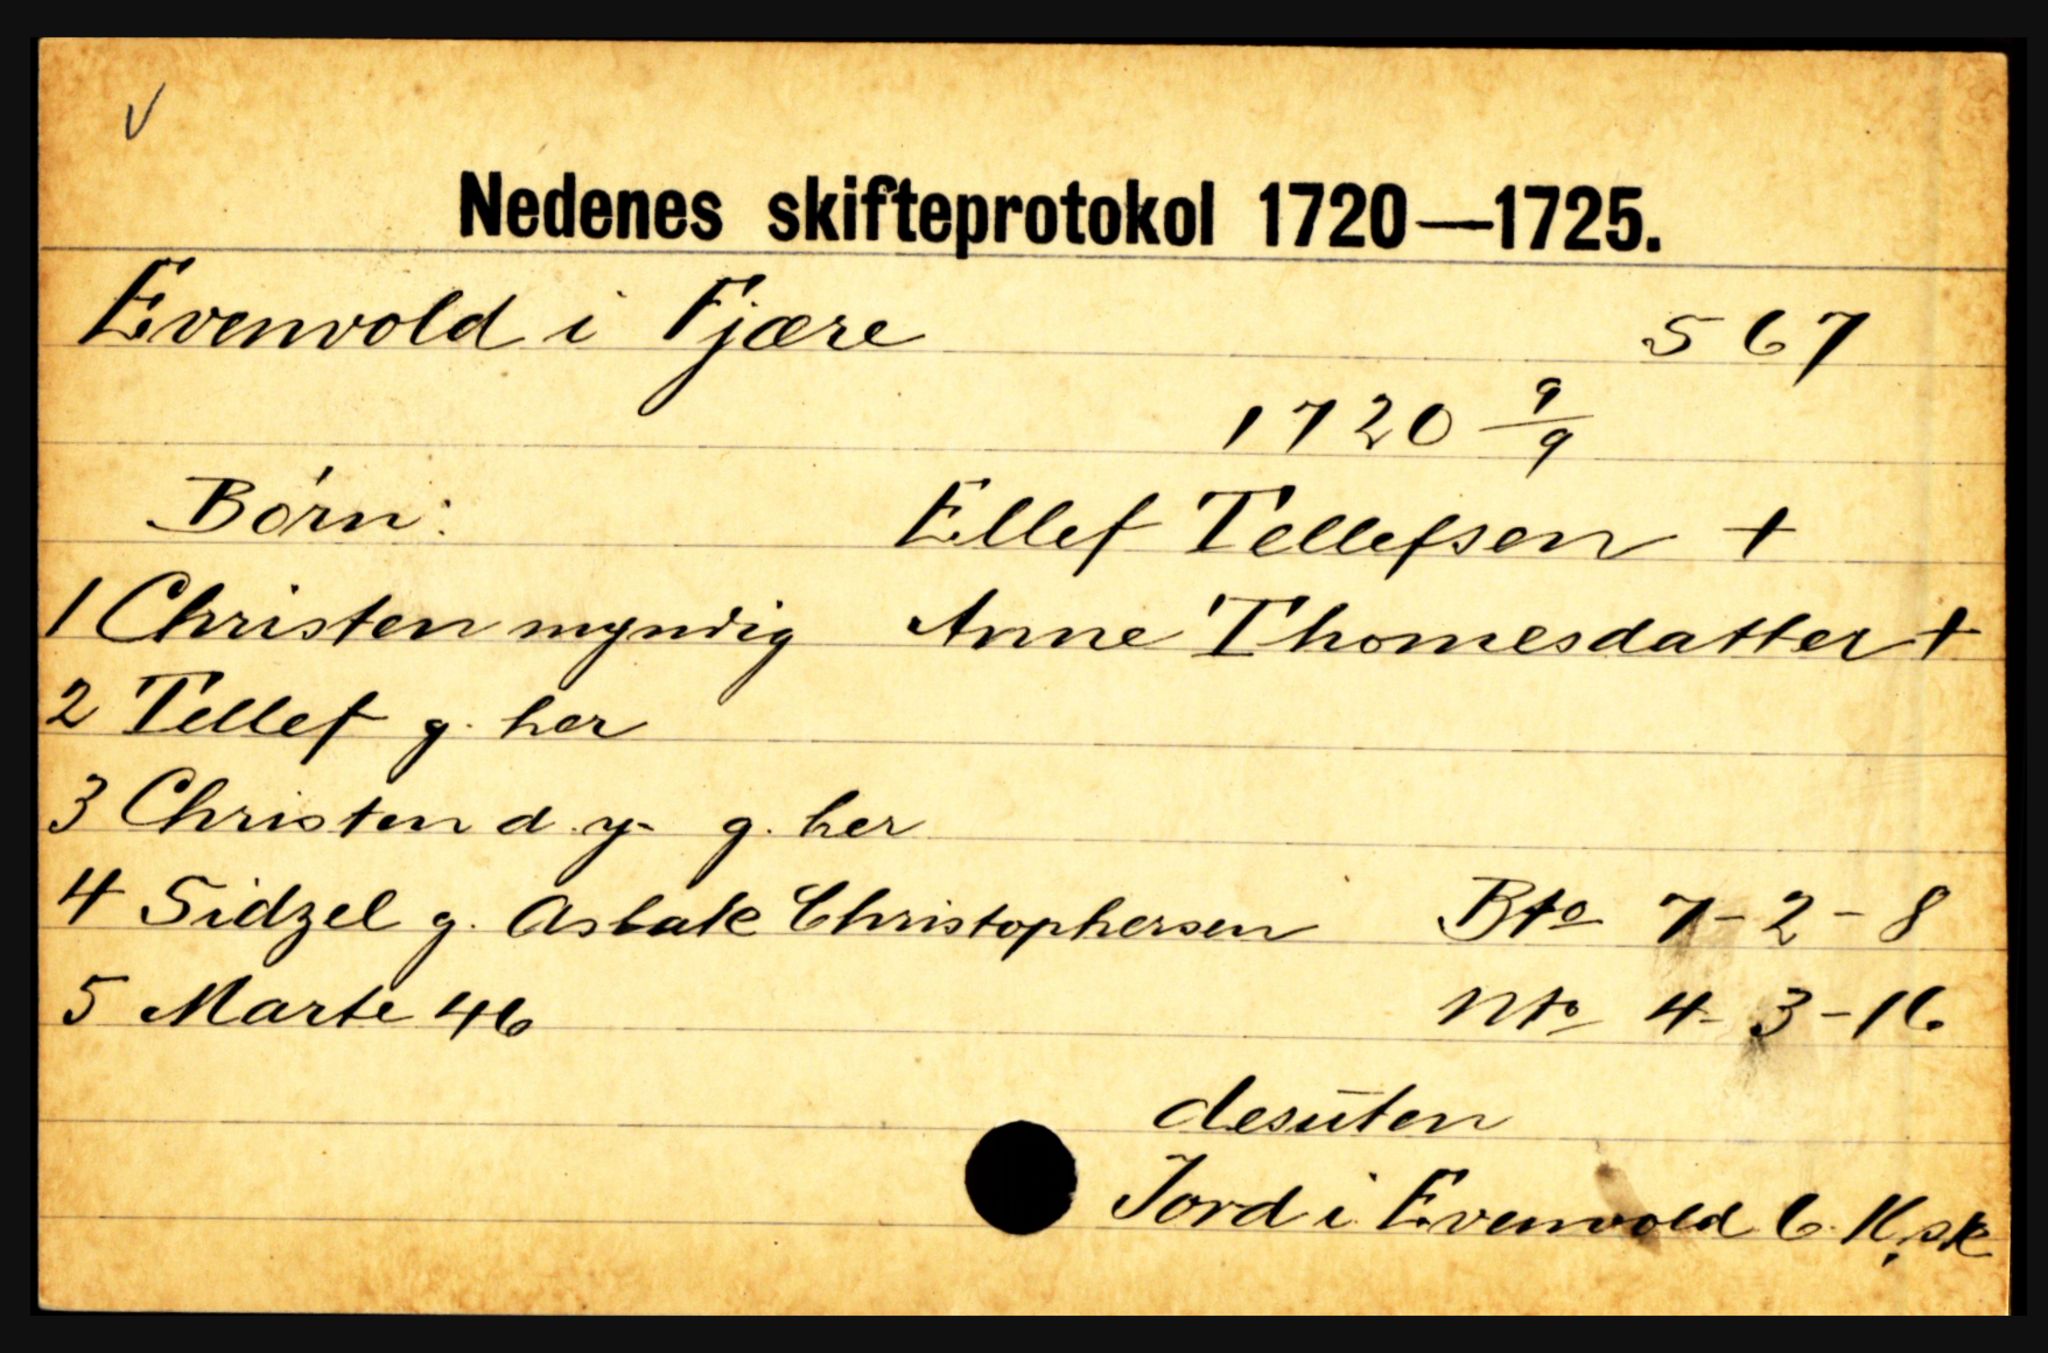 V
Nedenes skifteprotokol 1720—1725.
Evenvold i Fjære 567
1720 9/9
Børn: Ellef Tellefsen +
1 Christen myndig Anne Thomesdatter +
2 Tellef g. her
3 Christen d. y. g. her
4 Sidzel g. Aslak Christophersen Bto 7-2-8
5 Marte 46 Nto 4-3-16.
desuten
Jord i Evenvold 6